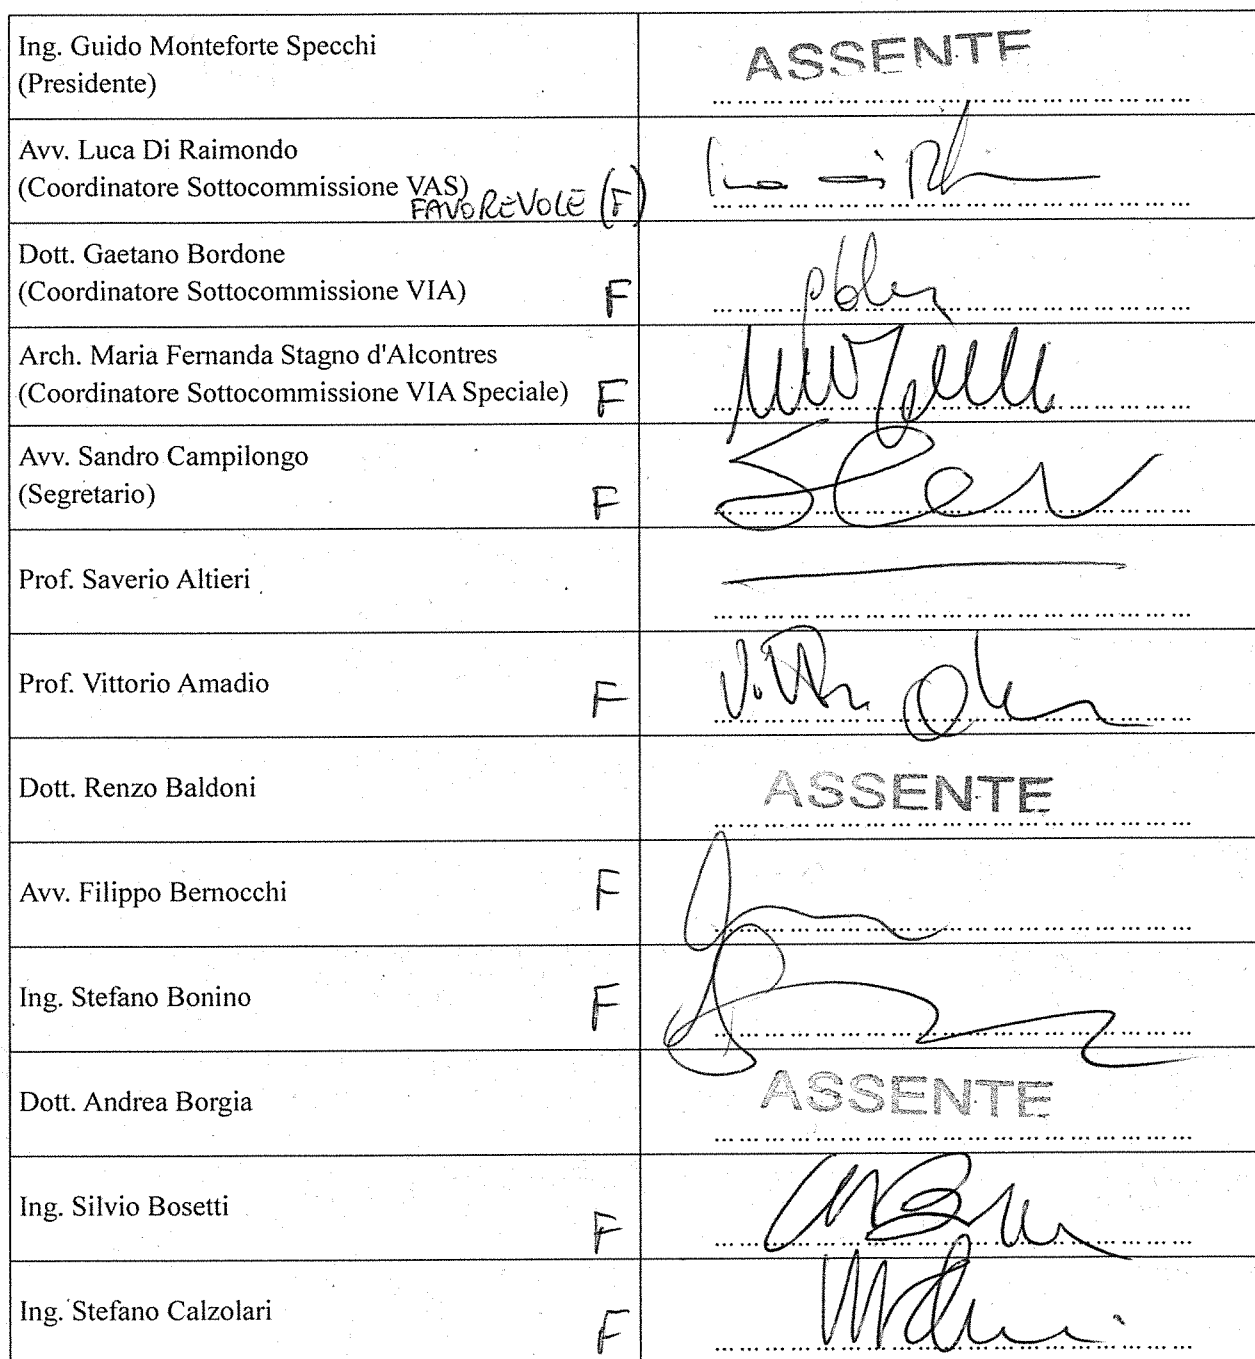 Ing. Guido Monteforte Specchi
(Presidente)
ASSENTE
Avv. Luca Di Raimondo
(Coordinatore Sottocommissione VAS)
FAVOREVOLE (F)
Dott. Gaetano Bordone
(Coordinatore Sottocommissione VIA)
F
Arch. Maria Fernanda Stagno d'Alcontres
(Coordinatore Sottocommissione VIA Speciale)
F
Avv. Sandro Campilongo
(Segretario)
F
Prof. Saverio Altieri
Prof. Vittorio Amadio
F
Dott. Renzo Baldoni
ASSENTE
Avv. Filippo Bernocchi
F
Ing. Stefano Bonino
F
Dott. Andrea Borgia
ASSENTE
Ing. Silvio Bosetti
F
Ing. Stefano Calzolari
F